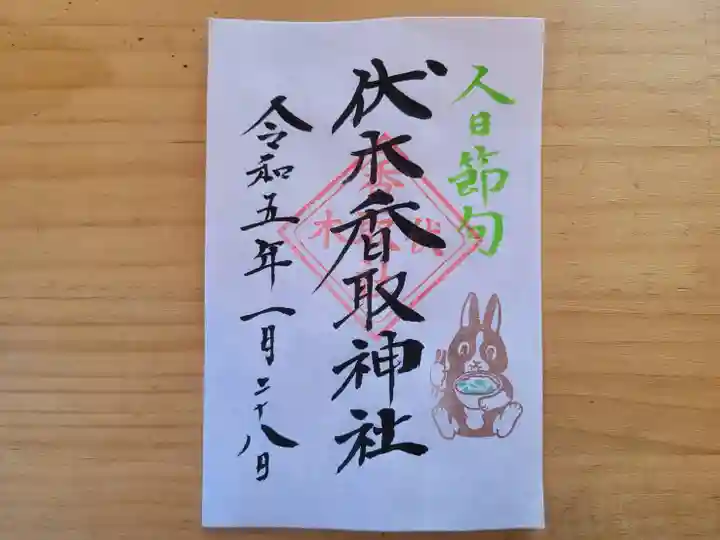 人日節句
伏木香取神社
令和五年一月二十八日
伏
木